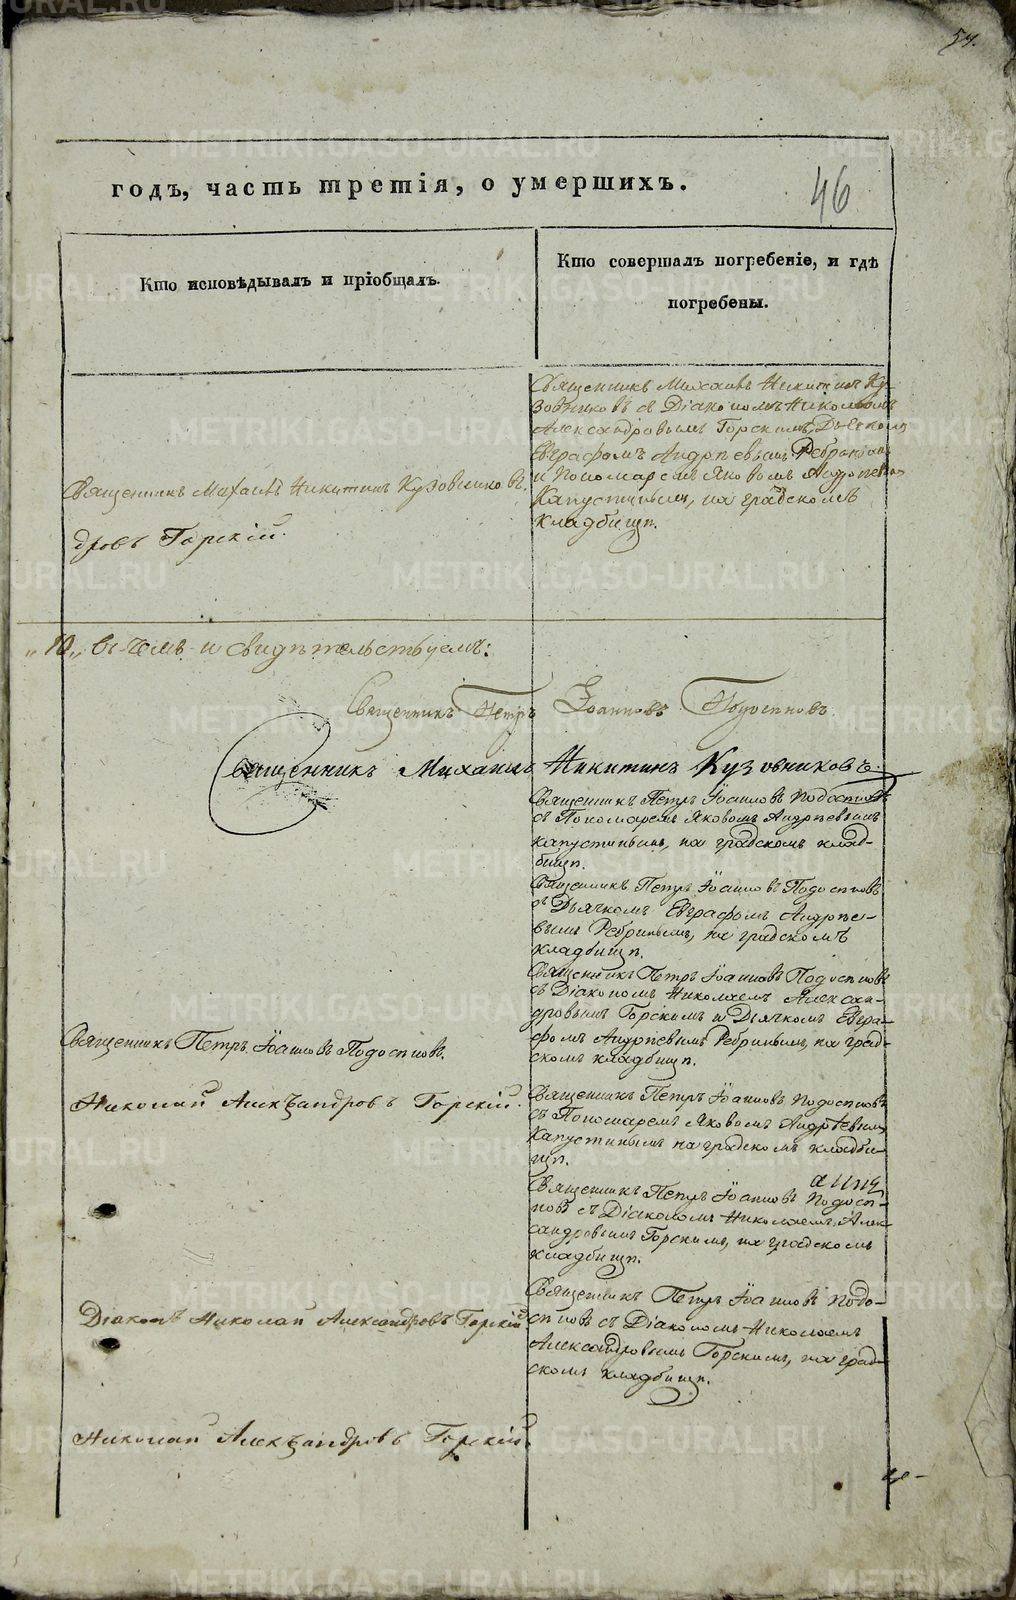 54.
годъ, часть третія, о умершихъ.
46
Кто исповѣдывалъ и пріобщалъ.
Кто совершалъ погребеніе, и гдѣ
погребены.
Священникъ Михаилъ Никитинъ Кузовниковъ.
дровъ Горскій.
Священникъ Михаилъ Никитинъ Ку-
зовниковъ съ Діакономъ Николаемъ
Александровымъ Горскимъ, Дьячкомъ
Евграфомъ Андрѣевымъ Ребринымъ
и Пономаремъ Яковомъ Андрѣевымъ
Капустинымъ, на градскомъ
кладбищѣ.
„10„ въ чемъ и свидѣтельствуемъ:
Священникъ Петръ Іоанновъ Подосеновъ
Священникъ Михаилъ Никитинъ Кузовниковъ.
Священникъ Петръ Іоанновъ Подосеновъ
съ Пономаремъ Яковомъ Андрѣевымъ
Капустинымъ, на градскомъ клад-
бищѣ.
Священникъ Петръ Іоанновъ Подосеновъ
съ Дьячкомъ Евграфомъ Андрѣе-
вымъ Ребринымъ, на градскомъ
кладбищѣ.
Священникъ Петръ Іоанновъ Подосеновъ
съ Діакономъ Николаемъ Алексан-
дровымъ Горскимъ и Дьячкомъ Евгра-
фомъ Андрѣевымъ Ребринымъ, на град-
скомъ кладбищѣ.
Священникъ Петръ Іоанновъ Подосеновъ.
Николай Александровъ Горскій.
Священникъ Петръ Іоанновъ Подосеновъ
съ Пономаремъ Яковомъ Андрѣевымъ
Капустинымъ на градскомъ кладби-
щѣ.
Священникъ Петръ Іоанновъ Подосе-
новъ съ Діакономъ Николаемъ Алек-
сандровымъ Горскимъ, на градскомъ
кладбищѣ.
Діаконъ Николай Александровъ Горскій.
Священникъ Петръ Іоанновъ Подо-
сеновъ съ Діакономъ Николаемъ
Александровымъ Горскимъ, на град-
скомъ кладбищѣ.
Николай Александровъ Горскій.
METRIKI.GASO-URAL.RU